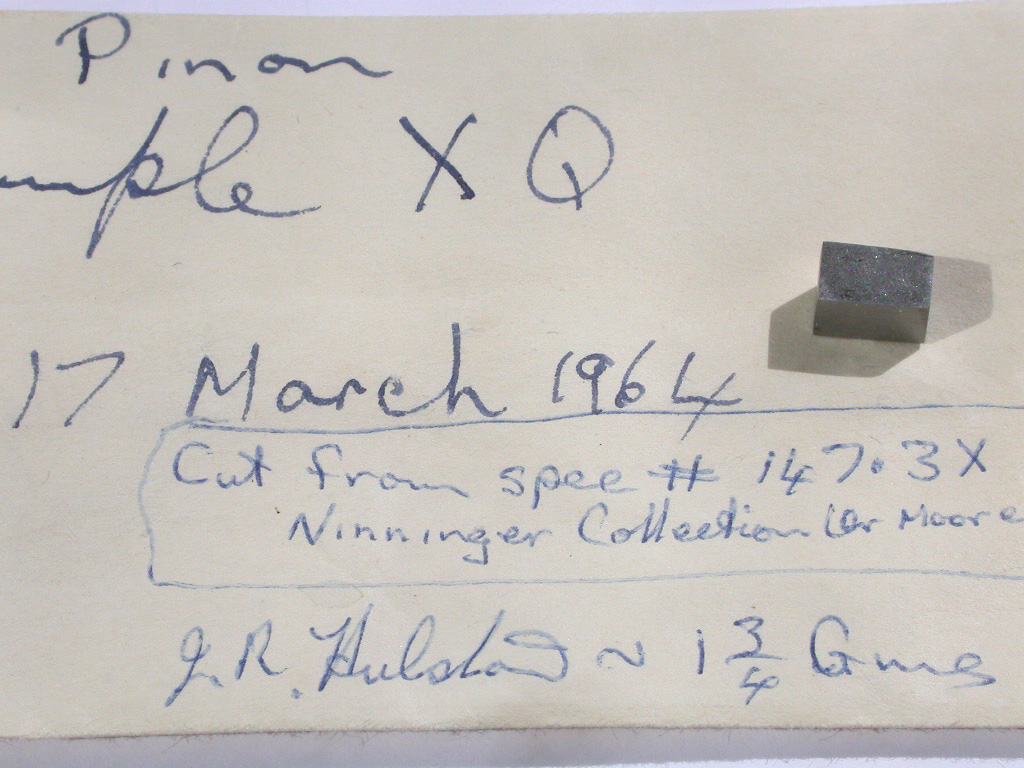 Pinon
mple X Q
17 March 1964
Cut from spec # 147.3X
Ninninger Collection (Dr Moore
J.R. Hulston ~ 1 3/4 Gms